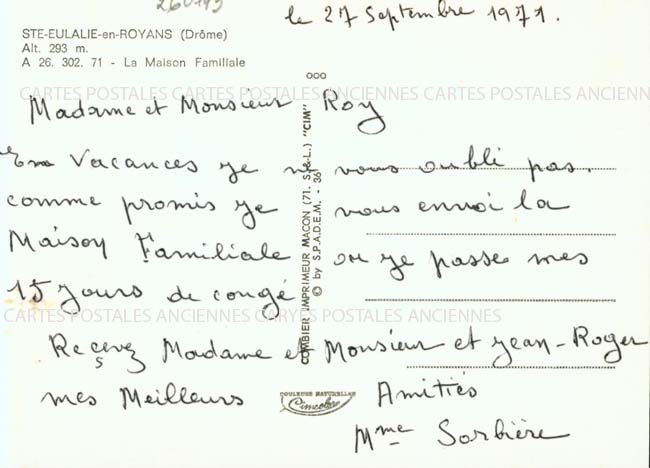 260193
le 27 Septembre 1971.
STE-EULALIE-en-ROYANS (Drôme)
Alt. 293 m.
A 26. 302. 71 - La Maison Familiale
CARTES POSTALES ANCIENNES CARTES POSTALES ANCIENNES CARTES POSTALES ANCIENNES
Madame et Monsieur Roy
En Vacances je n vous oubli pas.
comme promis je vous envoi la
Maison Familiale ou je passe mes
15 jours de congé
CARTES POSTALES ANCIENNES CARTES POSTALES ANCIENNES
Reçevez Madame et Monsieur et jean-Roger
mes Meilleurs Amitiés
Mme Sorbière
COMBIER IMPRIMEUR MACON (71. S.-&-L.) "CIM"
© by S.P.A.D.E.M. - 36
COULEURS NATURELLES
Cimcolor